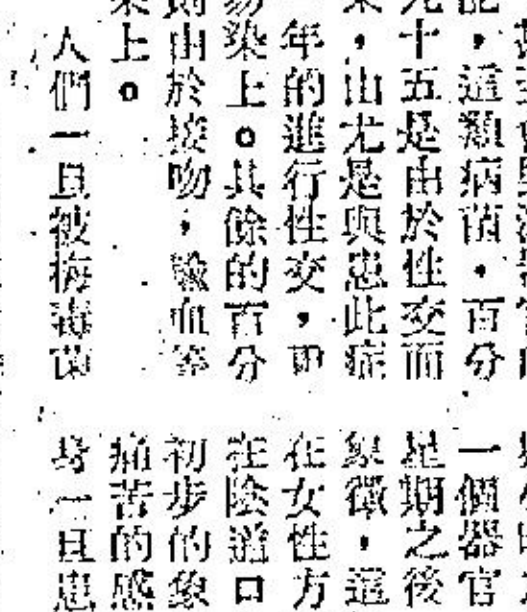 ，這類病菌，百分
九十五是由於性交而
，由尤是與患此症
年的進行性交，即
易染上。其餘的百分
則由於接吻，驗血等
染上。
人們一旦被梅毒菌
一個器官
星期之後
象徵，這
在女性方
在陰道口
初步的象
痛苦的感
身一旦患